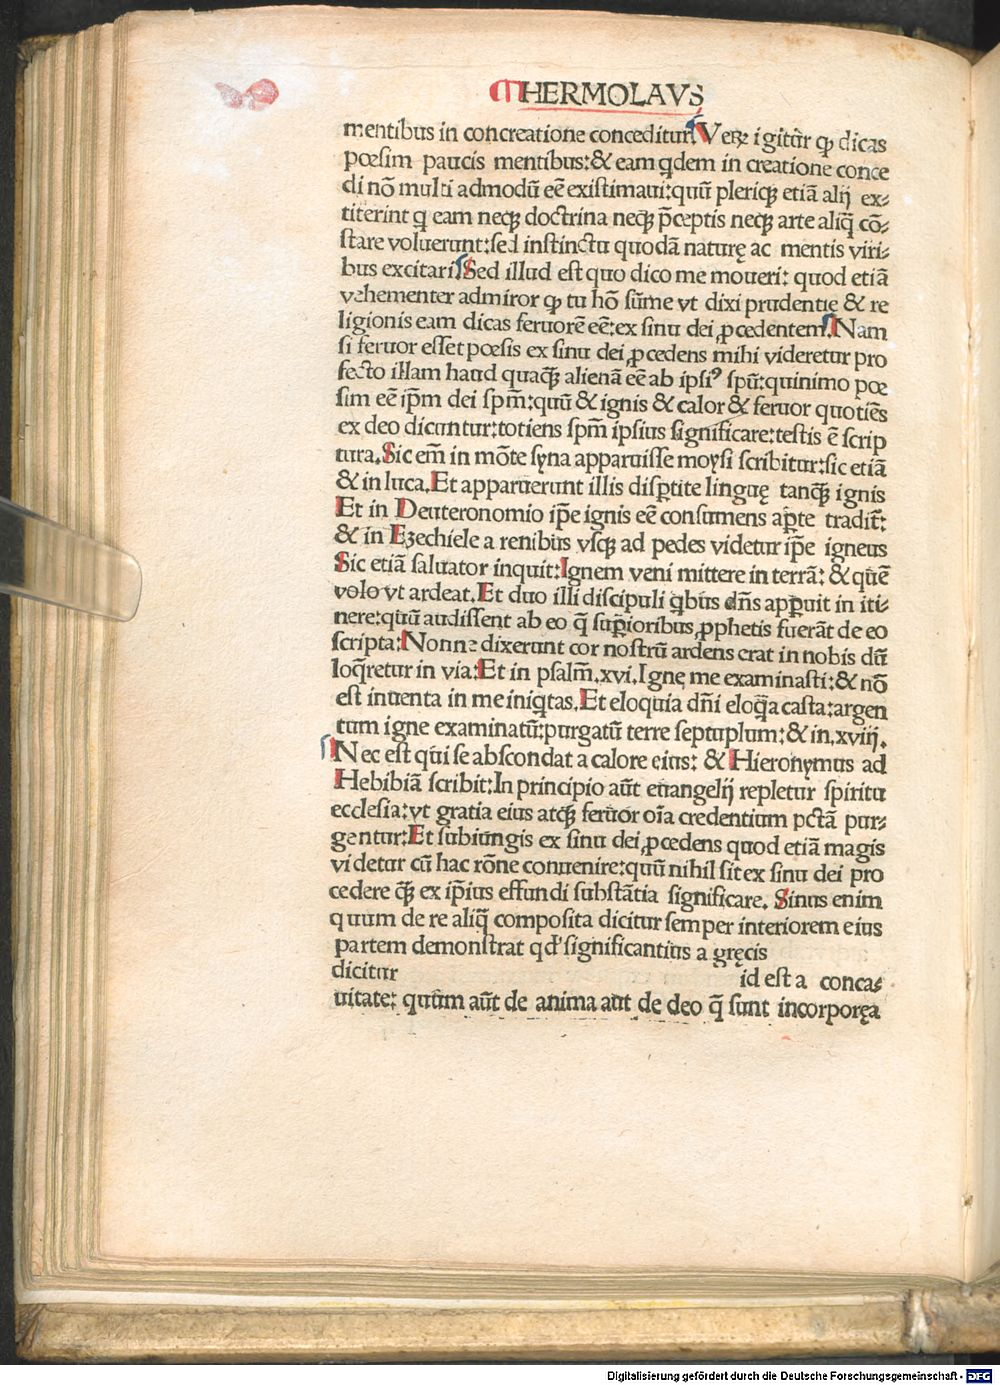 HERMOLAVS
mentibus in concreatione conceditur. Veꝝ igitur ꝙ dicas
poesim paucis mentibus: & eam qdem in creatione conce
di nõ multi admodũ eẽ existimaui: quũ pleriqꝫ etiã alij ex-
titerint q eam neqꝫ doctrina neqꝫ p̃ceptis neqꝫ arte aliq̃ cõ-
stare voluerunt: sed instinctu quodã naturę ac mentis viri-
bus excitari. Sed illud est quo dico me moueri: quod etiã
vehementer admiror ꝙ tu hõ sũme vt dixi prudentie & re
ligionis eam dicas feruorẽ eẽ: ex sinu dei ꝓcedentem. Nam
si feruor esset poesis ex sinu dei ꝓcedens mihi videretur pro
fecto illam haud quaqꝫ alienã eẽ ab ipsiꝰ spũ: quinimo poe
sim eẽ ip̃m dei spm̃: quũ & ignis & calor & feruor quotiẽs
ex deo dicuntur: totiens spm̃ ipsius significare: testis ẽ scrip
tura. Sic em̃ in mõte syna apparuisse moysi scribitur: sic etiã
& in luca. Et apparuerunt illis disꝑtite linguę tanqꝫ ignis
Et in Deuteronomio ip̃e ignis eẽ consumens aꝑte tradit̃:
& in Ezechiele a renibus vsqꝫ ad pedes videtur ip̃e igneus
Sic etiã saluator inquit: Ignem veni mittere in terrã: & quẽ
volo vt ardeat. Et duo illi discipuli qbus dñs apꝑuit in iti-
nere: quũ audissent ab eo q̃ suꝑioribus ꝓphetis fuerãt de eo
scripta: Nonne dixerunt cor nostrũ ardens erat in nobis dũ
loq̃retur in via: Et in psalm̃. xvi. Igne me examinasti: & nõ
est inuenta in me iniqtas. Et eloquia dñi eloq̃a casta: argen
tum igne examinatũ: purgatũ terre septuplum: & in. xviij.
Nec est qui se abscondat a calore eius: & Hieronymus ad
Hebibiã scribit: In principio aũt euangelij repletur spiritu
ecclesia: vt gratia eius atqꝫ feruor oĩa credentium pctã pur-
gentur: Et subiungis ex sinu dei ꝓcedens quod etiã magis
videtur cũ hac rõne conuenire: quũ nihil sit ex sinu dei pro
cedere qꝫ ex ip̃ius effundi substãtia significare. Sinus enim
quum de re aliq̃ composita dicitur semper interiorem eius
partem demonstrat qd' significantius a gręcis
dicitur id est a conca-
uitate: quum aũt de anima aut de deo q̃ sunt incorporęa
Digitalisierung gefördert durch die Deutsche Forschungsgemeinschaft - DFG